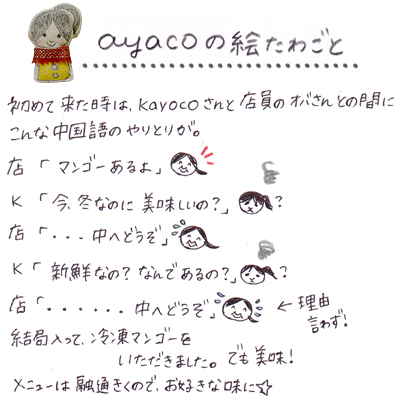 ayacoの絵たわごと
初めて来た時は、kayocoさんと店員のオバさんとの間に
こんな中国語のやりとりが。
店「マンゴーあるよ」
K「今、冬なのに美味しいの?」?
店「・・・中へどうぞ」
K「新鮮なの?なんであるの?」?
店「・・・・・・中へどうぞ」←理由
言わず!
結局入って、冷凍マンゴーを
いただきました。でも美味!
メニューは融通きくので、お好きな味に☆